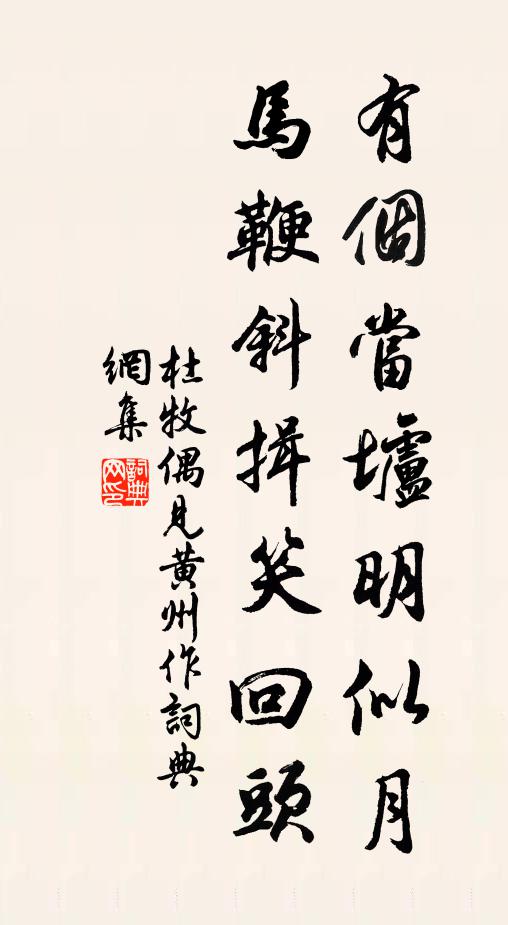 有個當壚明似月
馬鞭斜揖笑回頭
杜牧偶見黃州作詞典
網集
詞典
网印